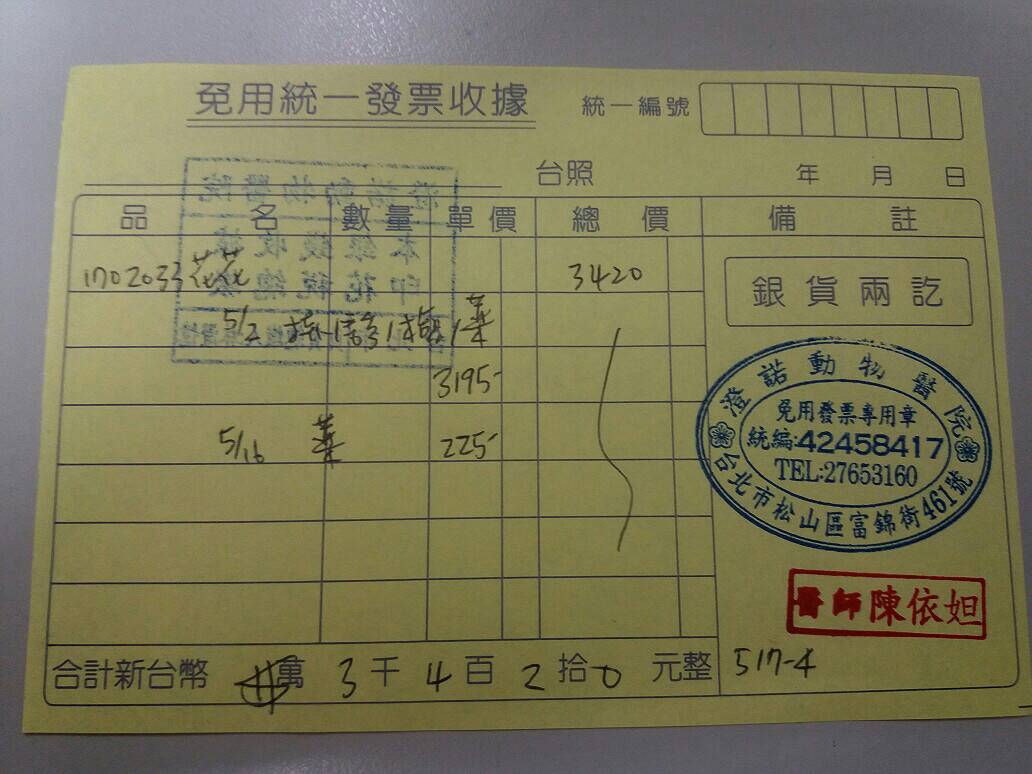 免用統一發票收據
統一編號
台照 年 月 日
品名 數量 單價 總價 備註
1702033花花 3420
銀貨兩訖
5/2
3195-
5/16 藥 225-
澄諾動物醫院
免用發票專用章
統編:42458417
TEL:27653160
台北市松山區富錦街461號
醫師陳依妲
合計新台幣 萬 3 千 4 百 2 拾 0 元整 517-4
澄諾動物醫院
本銀錢收據
印花稅總繳